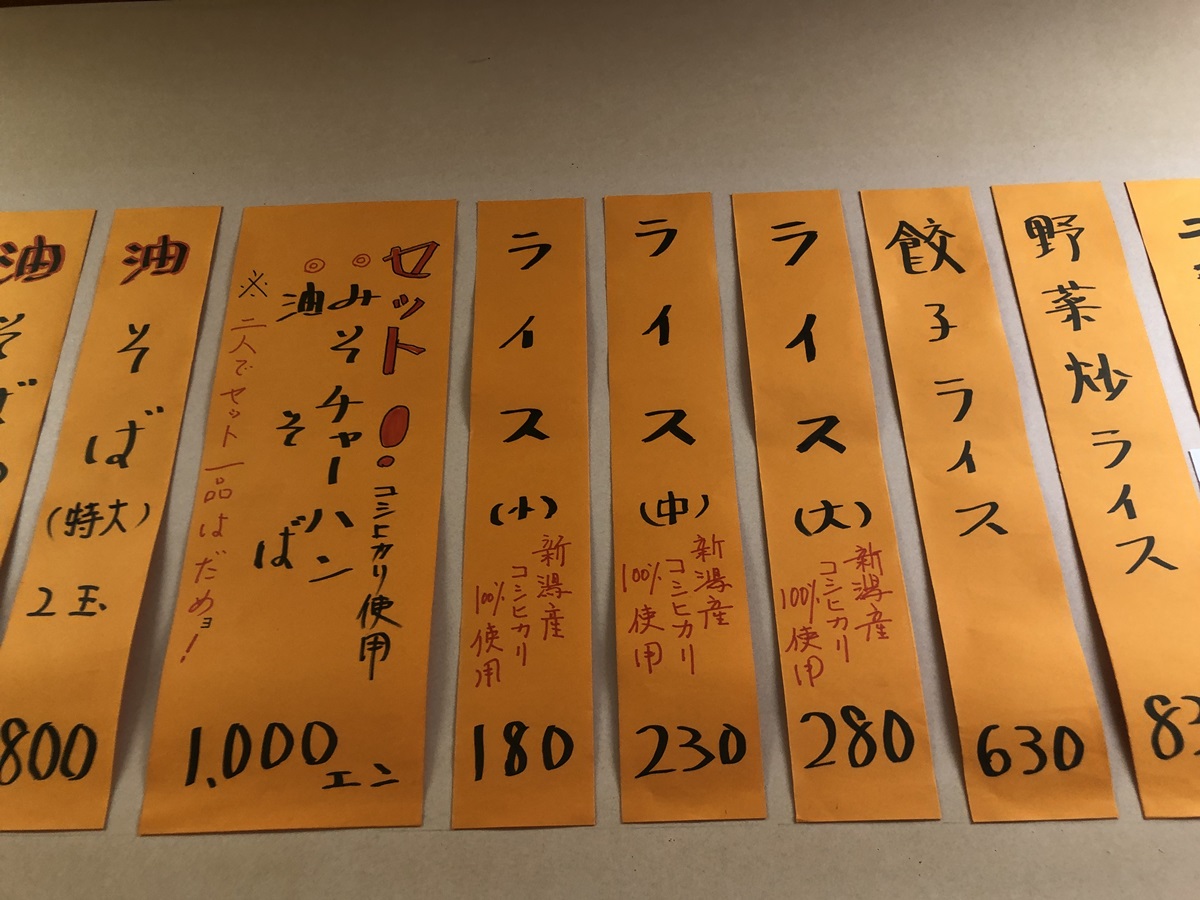 野菜炒ライス
餃子ライス
630
ライス
(大)
新潟産
コシヒカリ
100%使用
280
ライス
(中)
新潟産
コシヒカリ
100%使用
230
ライス
(小)
新潟産
コシヒカリ
100%使用
180
セット!コシヒカリ使用
◎みそチャーハン
◎油そば
※二人でセット一品はだめョ!
1,000エン
油そば
(特大)
2玉
800
油そば